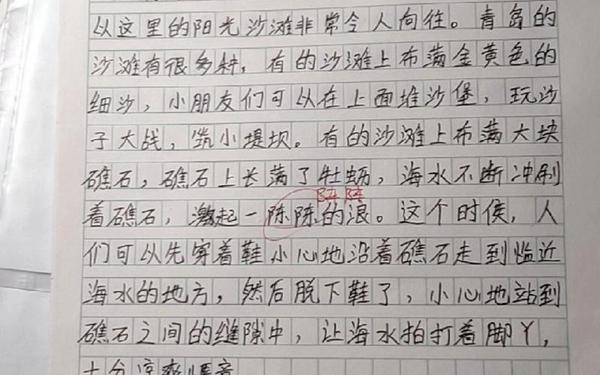 以这里的阳光沙滩非常令人向往。青岛的
沙滩有很多种，有的沙滩上布满金黄色的
细沙，小朋友们可以在上面堆沙堡，玩沙
子大战，筑小堤坝。有的沙滩上布满大块
礁石，礁石上长满了牡蛎，海水不断冲刷
着礁石，激起一陈陈的浪。这个时候，人
们可以先穿着鞋小心地沿着礁石走到临近
海水的地方，然后脱下鞋了，小心地站到
礁石之间的缝隙中，让海水拍打着脚丫，
十分凉爽惬意